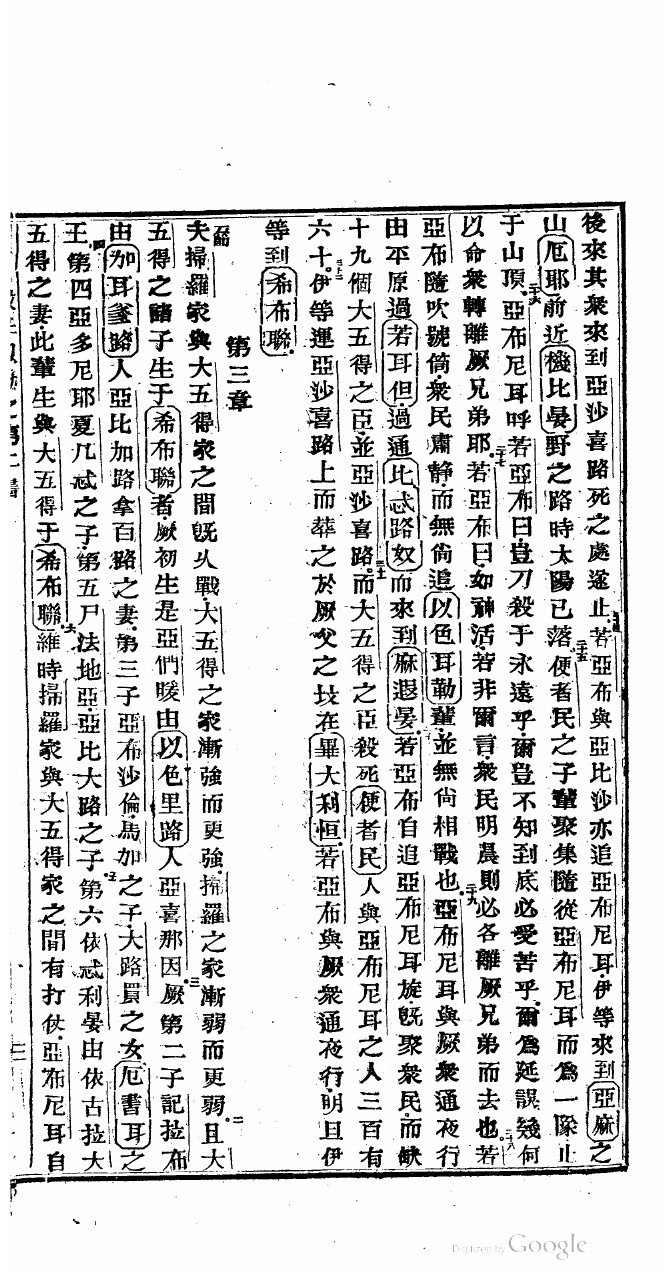 後來其衆來到亞沙喜路死之處遂止若亞布與亞比沙亦追亞布尼耳伊等來到亞麻之
山厄耶前近機比晏野之路時太陽已落便者民之子輩聚集隨從亞布尼耳而爲一隊止
于山頂亞布尼耳呼若亞布曰豈刀殺于永遠乎爾豈不知到底必受苦乎爾爲延誤幾何
以命衆轉離厥兄弟耶若亞布曰如神活若非爾言衆民明晨則必各離厥兄弟而去也若
亞布隨吹號筒衆民肅静而無尙追以色耳勒輩並無尙相戰也亞布尼耳與厥衆通夜行
由平原過若耳但過通比忒路奴而來到麻遐晏若亞布自追亞布尼耳旋旣聚衆民而缺
十九個大五得之臣並亞沙喜路而大五得之臣殺死便者民人與亞布尼耳之人三百有
六十伊等運亞沙喜路上而葬之於厥父之坟在畢大利恒若亞布與厥衆通夜行明旦伊
等到希布聯
第三章
夫掃羅家與大五得家之間旣久戰大五得之家漸強而更強掃羅之家漸弱而更弱且大
五得之諸子生于希布聯者厥初生是亞們唛由以色里路人亞喜那因厥第二子記拉布
由加耳篴路人亞比加路拿百路之妻第三子亞布沙倫馬加之子大路買之女厄書耳之
王第四亞多尼耶夏几忒之子第五尸法地亞亞比大路之子第六依忒利晏由依古拉大
五得之妻此輩生與大五得于希布聯維時掃羅家與大五得家之間有打仗亞布尼耳自
Digitized by Google